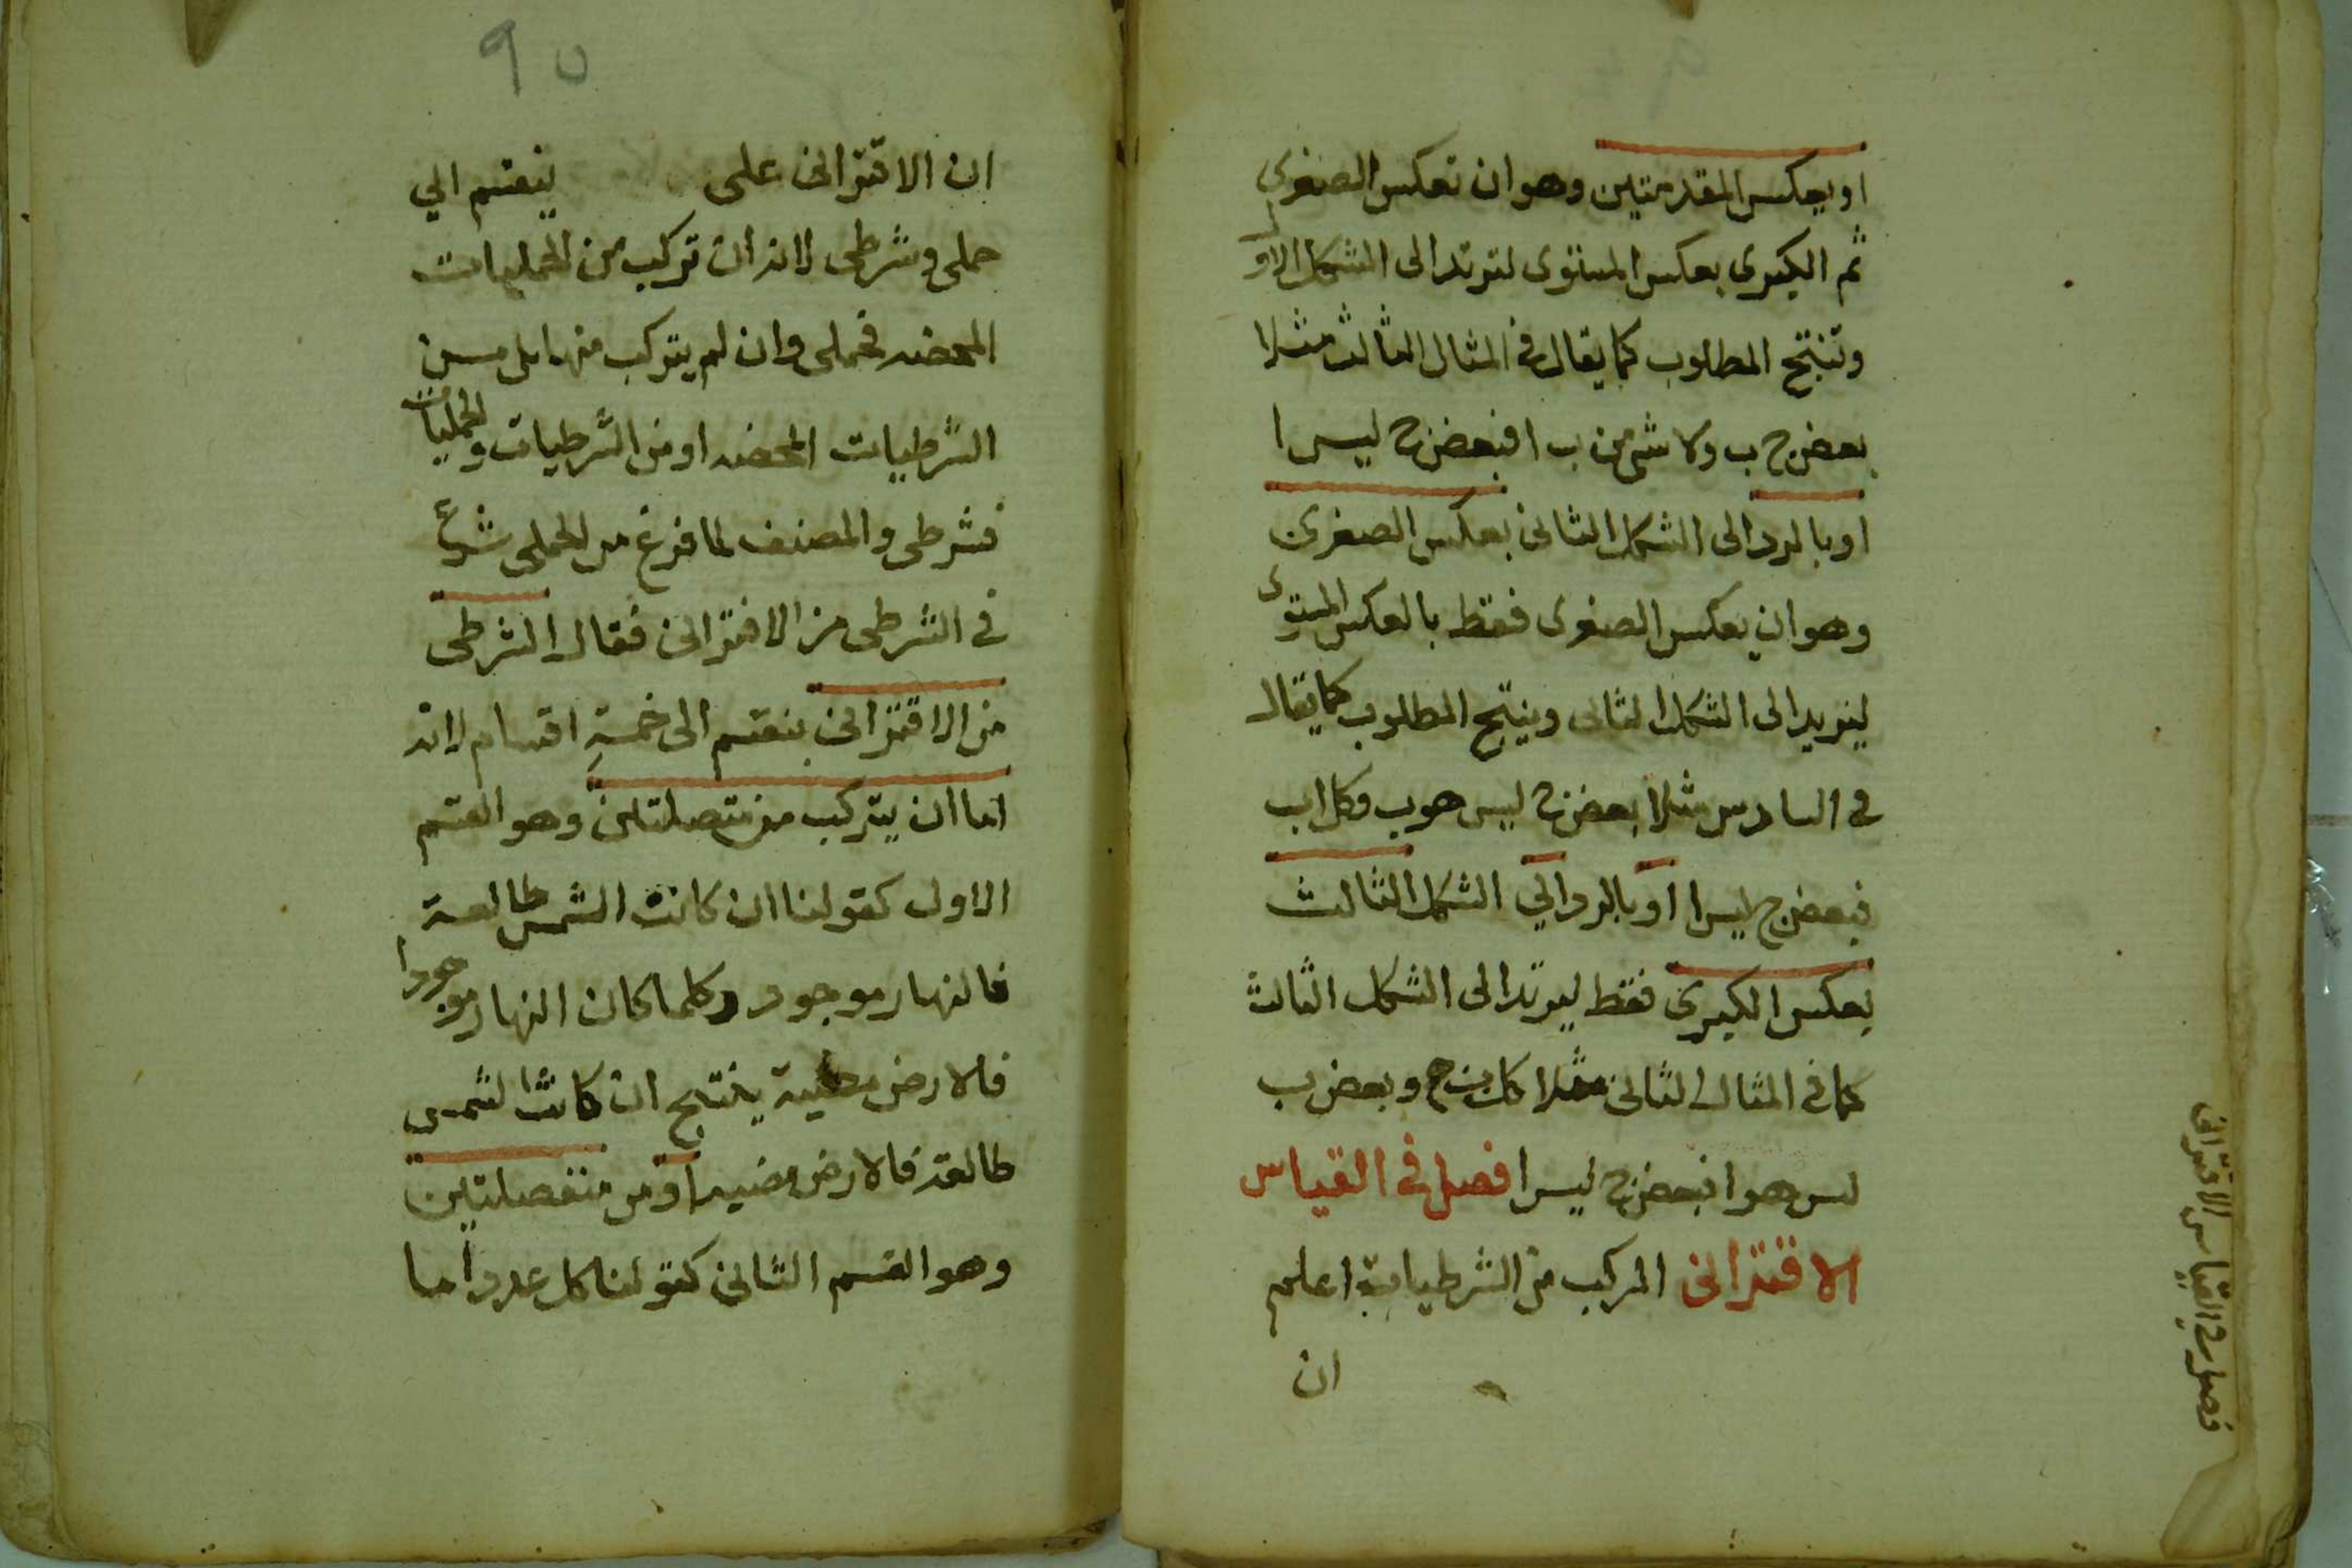 او بعكس المقدمتين وهو ان تعكس الصغرى
ثم الكبرى بعكس المستوى لترتد الى الشكل الاول
وتنتج المطلوب كما يقال فى المثال الثالث مثلا
بعض ج ب ولا شئ من ب ا فبعض ج ليس ا
او بالرد الى الشكل الثانى بعكس الصغرى
وهو ان يعكس الصغرى فقط بالعكس المستوى
ليرتد الى الشكل الثانى وينتج المطلوب كما يقال
فى السادس مثلا بعض ج ليس هو ب وكل ا ب
فبعض ج ليس ا او بالرد الي الشكل الثالث
بعكس الكبرى فقط ليرتد الى الشكل الثالث
كما فى المثال الثانى مثلا كل ب ج وبعض ب
ليس هو ا فبعض ج ليس ا فصل فى القياس
الاقترانى المركب من الشرطيات اعلم
ان
فصل فى القياس الاقترانى
٩٥
ان الاقترانى على ينقسم الي
حملى وشرطى لانه ان تركب من الحمليات
المحضه فحملى وان لم يتركب منها بل من
الشرطيات المحضه او من الشرطيات والحمليات
فشرطى والمصنف لما فرغ من الحملى شرع
فى الشرطى من الاقترانى فقال الشرطى
من الاقترانى ينقسم الى خمسة اقسام لانه
اما ان يتركب من متصلتين وهو القسم
الاول كقولنا ان كانت الشمس طالعة
فالنهار موجود وكلما كان النهار موجودا
فالارض مضيئة ينتج ان كانت الشمس
طالعة فالارض مضيه او من منفصلتين
وهو القسم الثانى كقولنا كل عدد اما